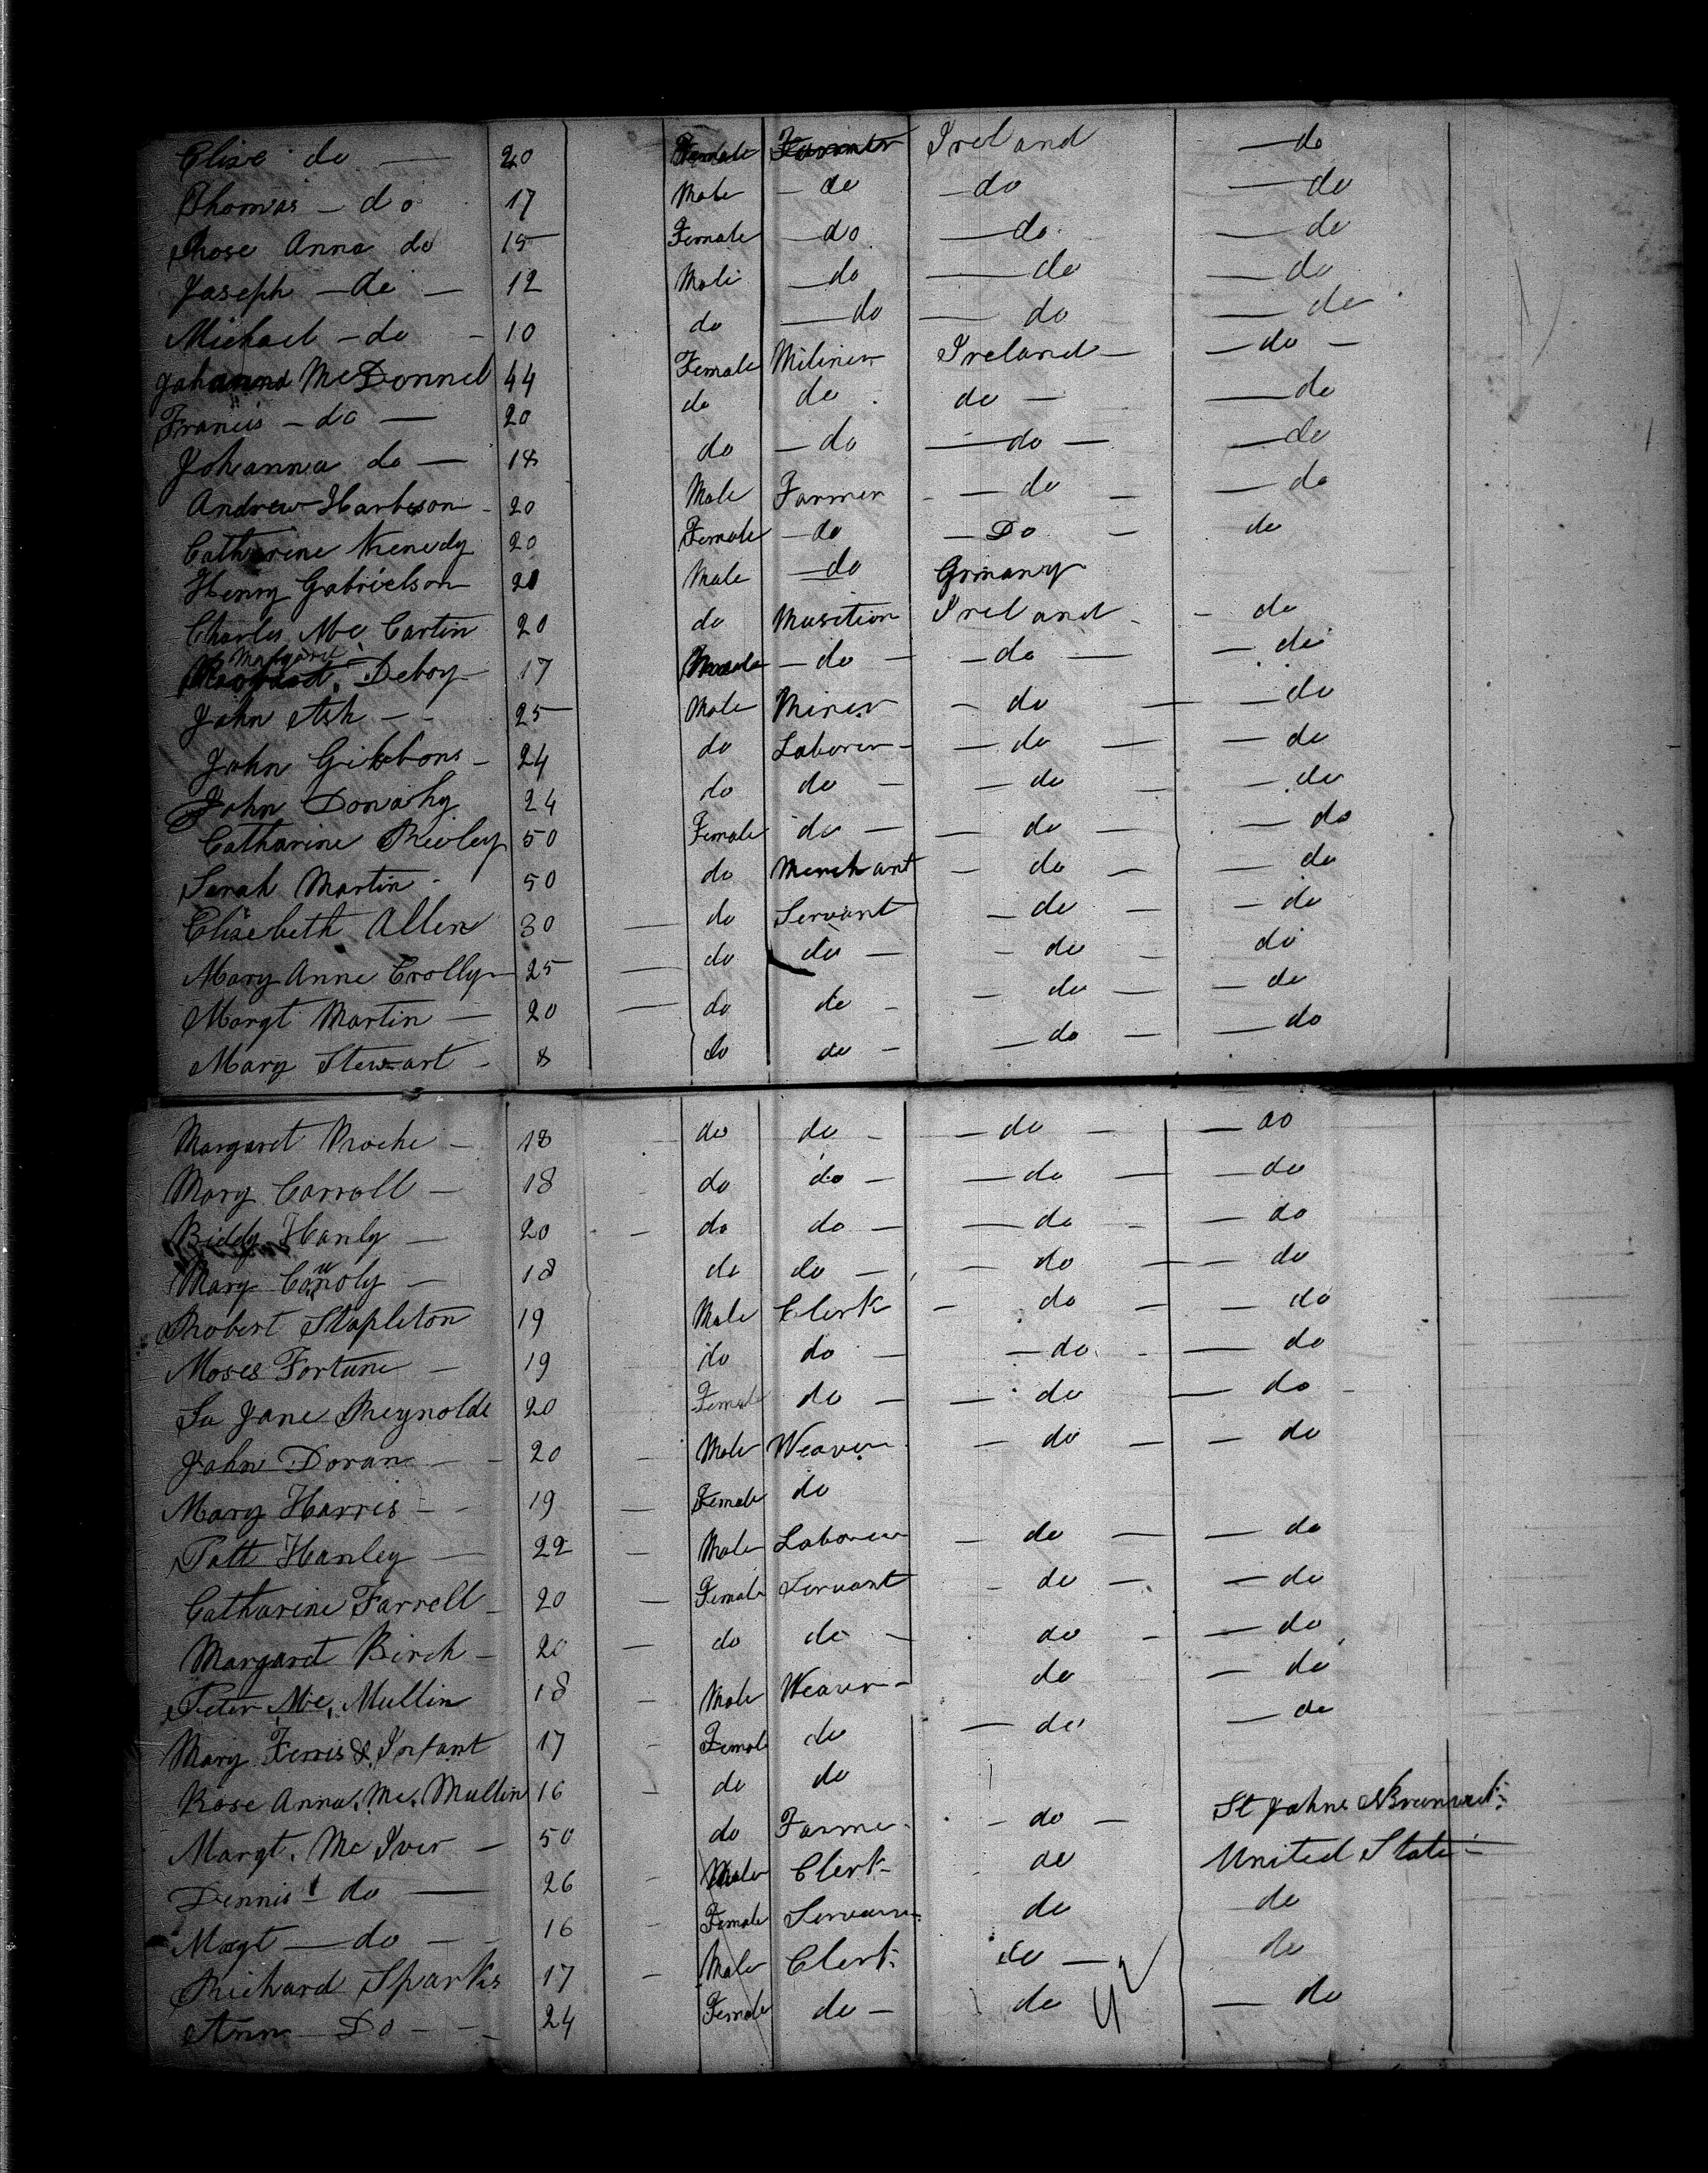 Elise do — 20 Female Farmer Ireland — do
Thomas — do 17 Male — do — do — do
Rose Anna do 15 Female — do — do — do
Joseph — do — 12 Male — do — do — do
Michael — do — 10 do — do — do — do
Johanna McDonnel 44 Female Miliner Ireland — — do —
Francis — do — 20 do do do — — do
Johanna do — 18 do — do — do — — do
Andrew Harbison - 20 Male Farmer - — do — — do
Catharine Kenedy 20 Female — do — Do — do
Henry Gabrielson 20 Male — do Grmany
Charles Mc Cartin 20 do Musition Ireland - - do
Margaret Deboy 17 — do — — do — — do
John Ash — - 25 Male Miner - do — — do
John Gibbons - 24 do Laborer - — do — — do
John Donahy 24 do do — — do — — do
Catharine 50 Female do — — do — — do
Sarah Martin - 50 do Merchant — do — — do
Elisebeth Allen 30 — do Servant — do — — do
Mary Anne Crolly 25 — do do — - do - do
Margt Martin — 20 — do do - — do — — do
Mary Stewart - 8 do do - — do — — do
Margaret Roche - 18 do do - — do — — do
Mary Carroll — 18 - do do - — do — — do
Biddy Hanly — 20 — do do — — do - — do
Mary Conoly — 18 do do — — do — — do
Robert Stapleton 19 Male Clerk - do — — do
Moses Fortune — 19 do do — — do - — do
Jane Reynolds 20 Female do — — do — do -
John Doran — - 20 — Male Weaver — do — — do
Mary Harris - - 19 — Female do
Patt Hanley — 22 — Male Laborer — do — — do
Catharine Farrell - 20 — Female Servant - do — — do
Margaret Birch - 20 — do do — do — — do
Peter Mc. Mullin 18 — Male Weaver - do — do
Mary Ferris & Infant 17 - Female do — do — do
Rose Anna. Mc. Mullin 16 - do do
Margt. Mc Iver — 50 do Farmer - do — St Johns NBrunswick
Dennis - do — 26 - Male Clerk - do United States
Margt — do — - 16 - Female do do
Richard Sparks 17 - Male Clerk - do — do
Ann — Do - - 24 Female do — do — do